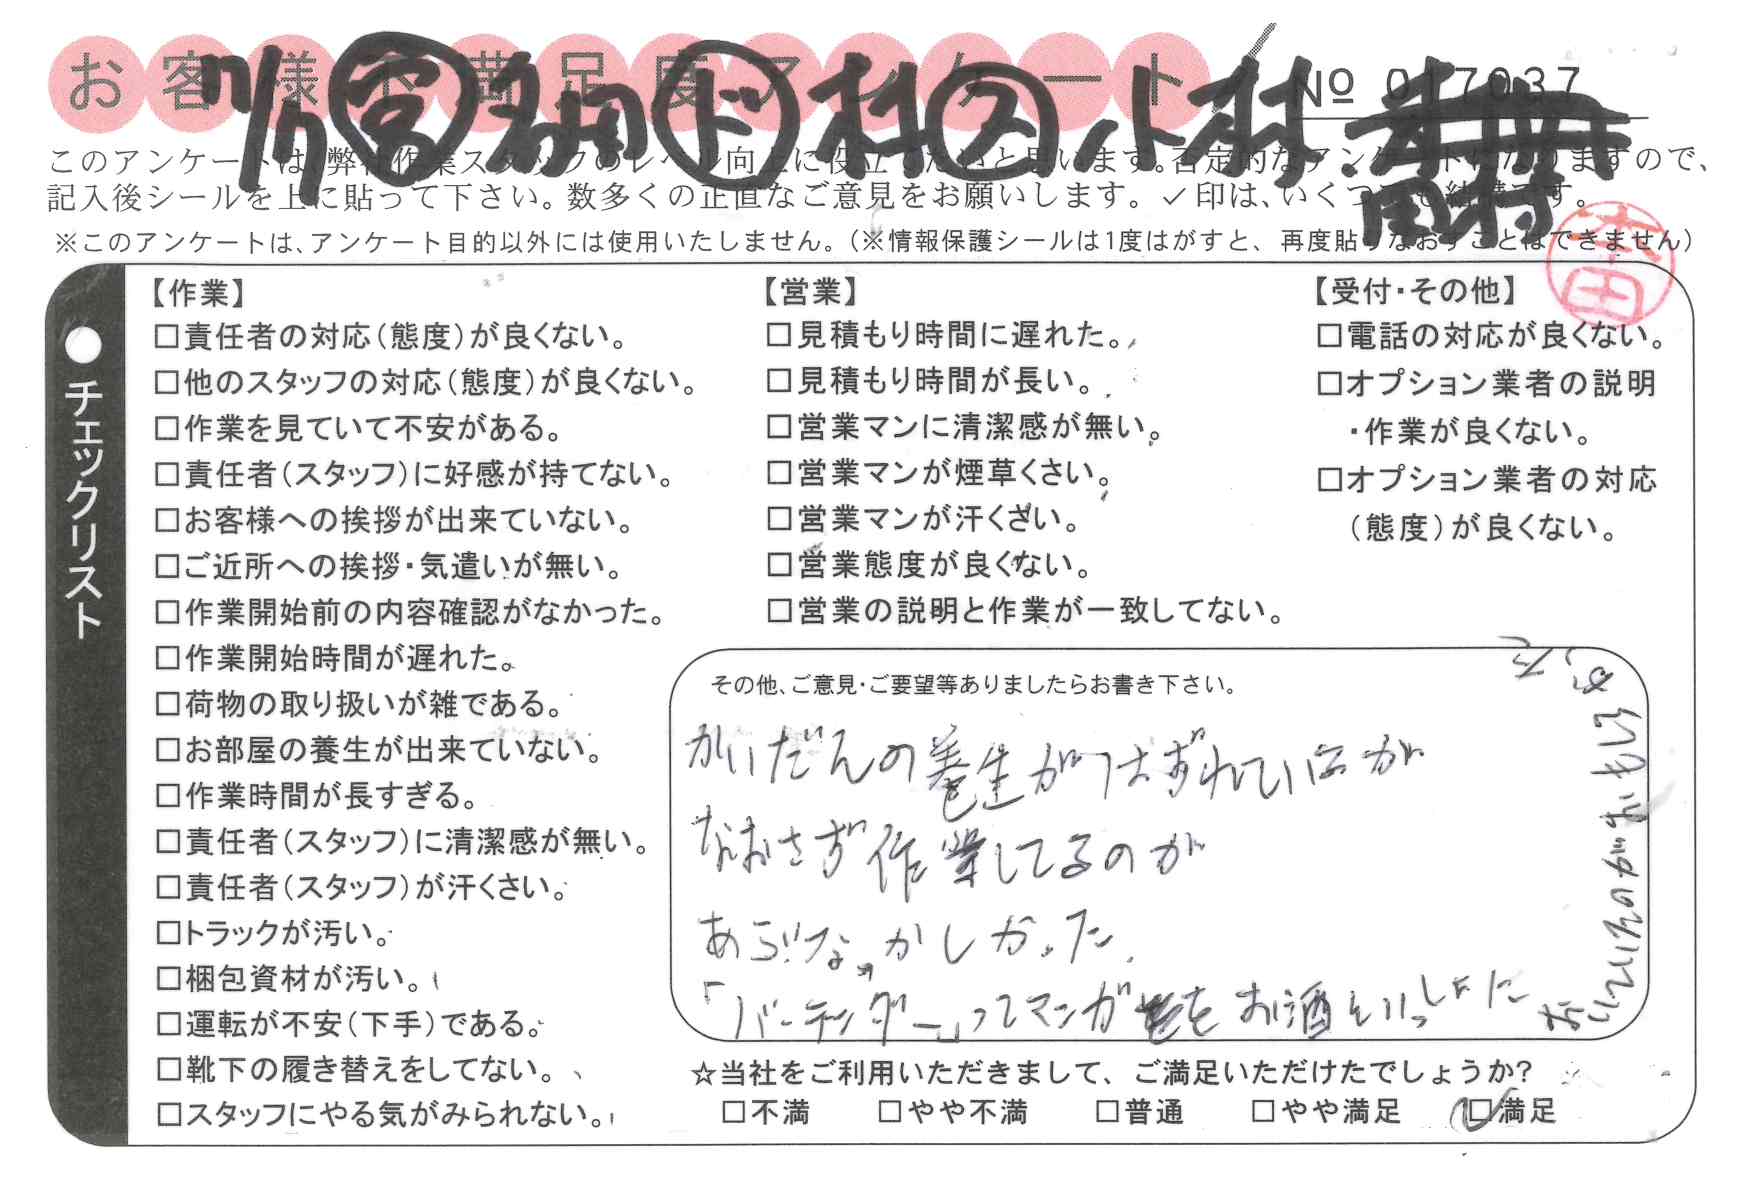 お客様不満足度アンケート
№ 017037
11/7 営 ド 村 ス 小林
田村
本田
このアンケートは、弊社作業スタッフのレベル向上に役立てたいと思います。否定的なアンケートになりますので、
記入後シールを上に貼って下さい。数多くの正直なご意見をお願いします。✓印は、いくつでも結構です。
※このアンケートは、アンケート目的以外には使用いたしません。（※情報保護シールは1度はがすと、再度貼りなおすことはできません）
●チェックリスト
【作業】
□責任者の対応（態度）が良くない。
□他のスタッフの対応（態度）が良くない。
□作業を見ていて不安がある。
□責任者（スタッフ）に好感が持てない。
□お客様への挨拶が出来ていない。
□ご近所への挨拶・気遣いが無い。
□作業開始前の内容確認がなかった。
□作業開始時間が遅れた。
□荷物の取り扱いが雑である。
□お部屋の養生が出来ていない。
□作業時間が長すぎる。
□責任者（スタッフ）に清潔感が無い。
□責任者（スタッフ）が汗くさい。
□トラックが汚い。
□梱包資材が汚い。
□運転が不安（下手）である。
□靴下の履き替えをしてない。
□スタッフにやる気がみられない。
【営業】
□見積もり時間に遅れた。
□見積もり時間が長い。
□営業マンに清潔感が無い。
□営業マンが煙草くさい。
□営業マンが汗くさい。
□営業態度が良くない。
□営業の説明と作業が一致してない。
【受付・その他】
□電話の対応が良くない。
□オプション業者の説明
・作業が良くない。
□オプション業者の対応
（態度）が良くない。
その他、ご意見・ご要望等ありましたらお書き下さい。
かいだんの養生がはずれていたが
なおさず作業してるのが
あぶなっかしかった。
「バーテンダー」ってマンガをお酒といっしょに
おいているのがおもしろ
かった
☆当社をご利用いただきまして、ご満足いただけたでしょうか？
□不満 □やや不満 □普通 □やや満足 ☑満足